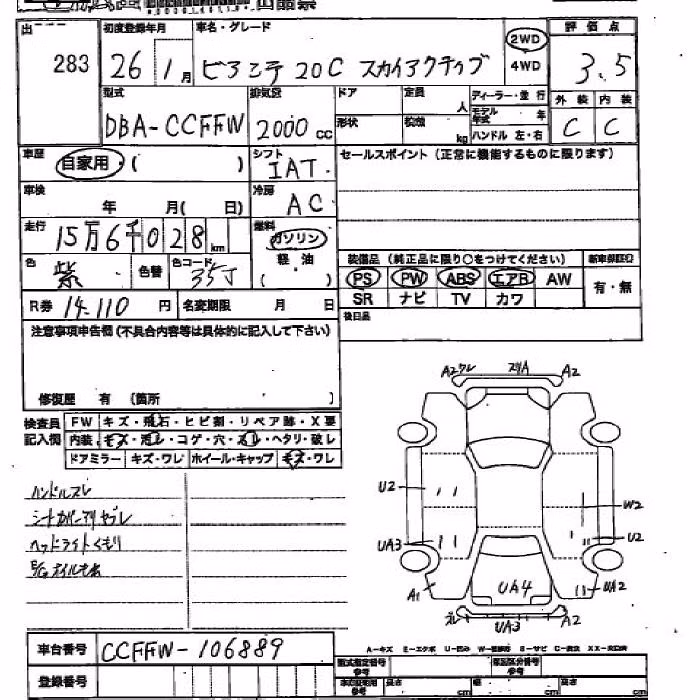 出 初度登録年月 車名・グレード 2WD 4WD 評価点
283 26 1月 ビアンテ 20C スカイアクティブ 3.5
型式 排気量 ドア 定員 人 ディーラー・並行 外装 内装
DBA-CCFFW 2000cc 形状 積載 kg モデル年式 年 C C
ハンドル 左・右
車歴 自家用・( ) シフト IAT. セールスポイント (正常に機能するものに限ります)
車検 年 月( 日) 冷房 AC
走行 15万6千028km 燃料 ガソリン 軽油 ( )
色 紫 色替 色コード 35J
装備品 (純正品に限り○をつけてください) 新車保証書
PS PW ABS エアB AW 有・無
SR ナビ TV カワ
R券 14.110円 名変期限 月 日 後日品
注意事項申告欄(不具合内容等は具体的に記入して下さい)
修復歴 有 (箇所 )
検査員記入欄 FW キズ・飛石・ヒビ割・リペア跡・X要
内装 キズ・汚レ・コゲ・穴・スレ・ヘタリ・破レ
ドアミラー キズ・ワレ ホイール・キャップ キズ・ワレ
ハンドルスレ
シートカバーアリ ヤブレ
ヘッドライトくもり
A2ワレ スリA A2
U2 W2
UA3 U2
A1 UA4 UA2
ズレ UA3 A2
車台番号 CCFFW-106889
A-キズ E-エクボ U-凹み S-サビ
登録番号 型式指定番号 参考 類別区分番号 参考
長さ cm 幅 cm 高さ cm